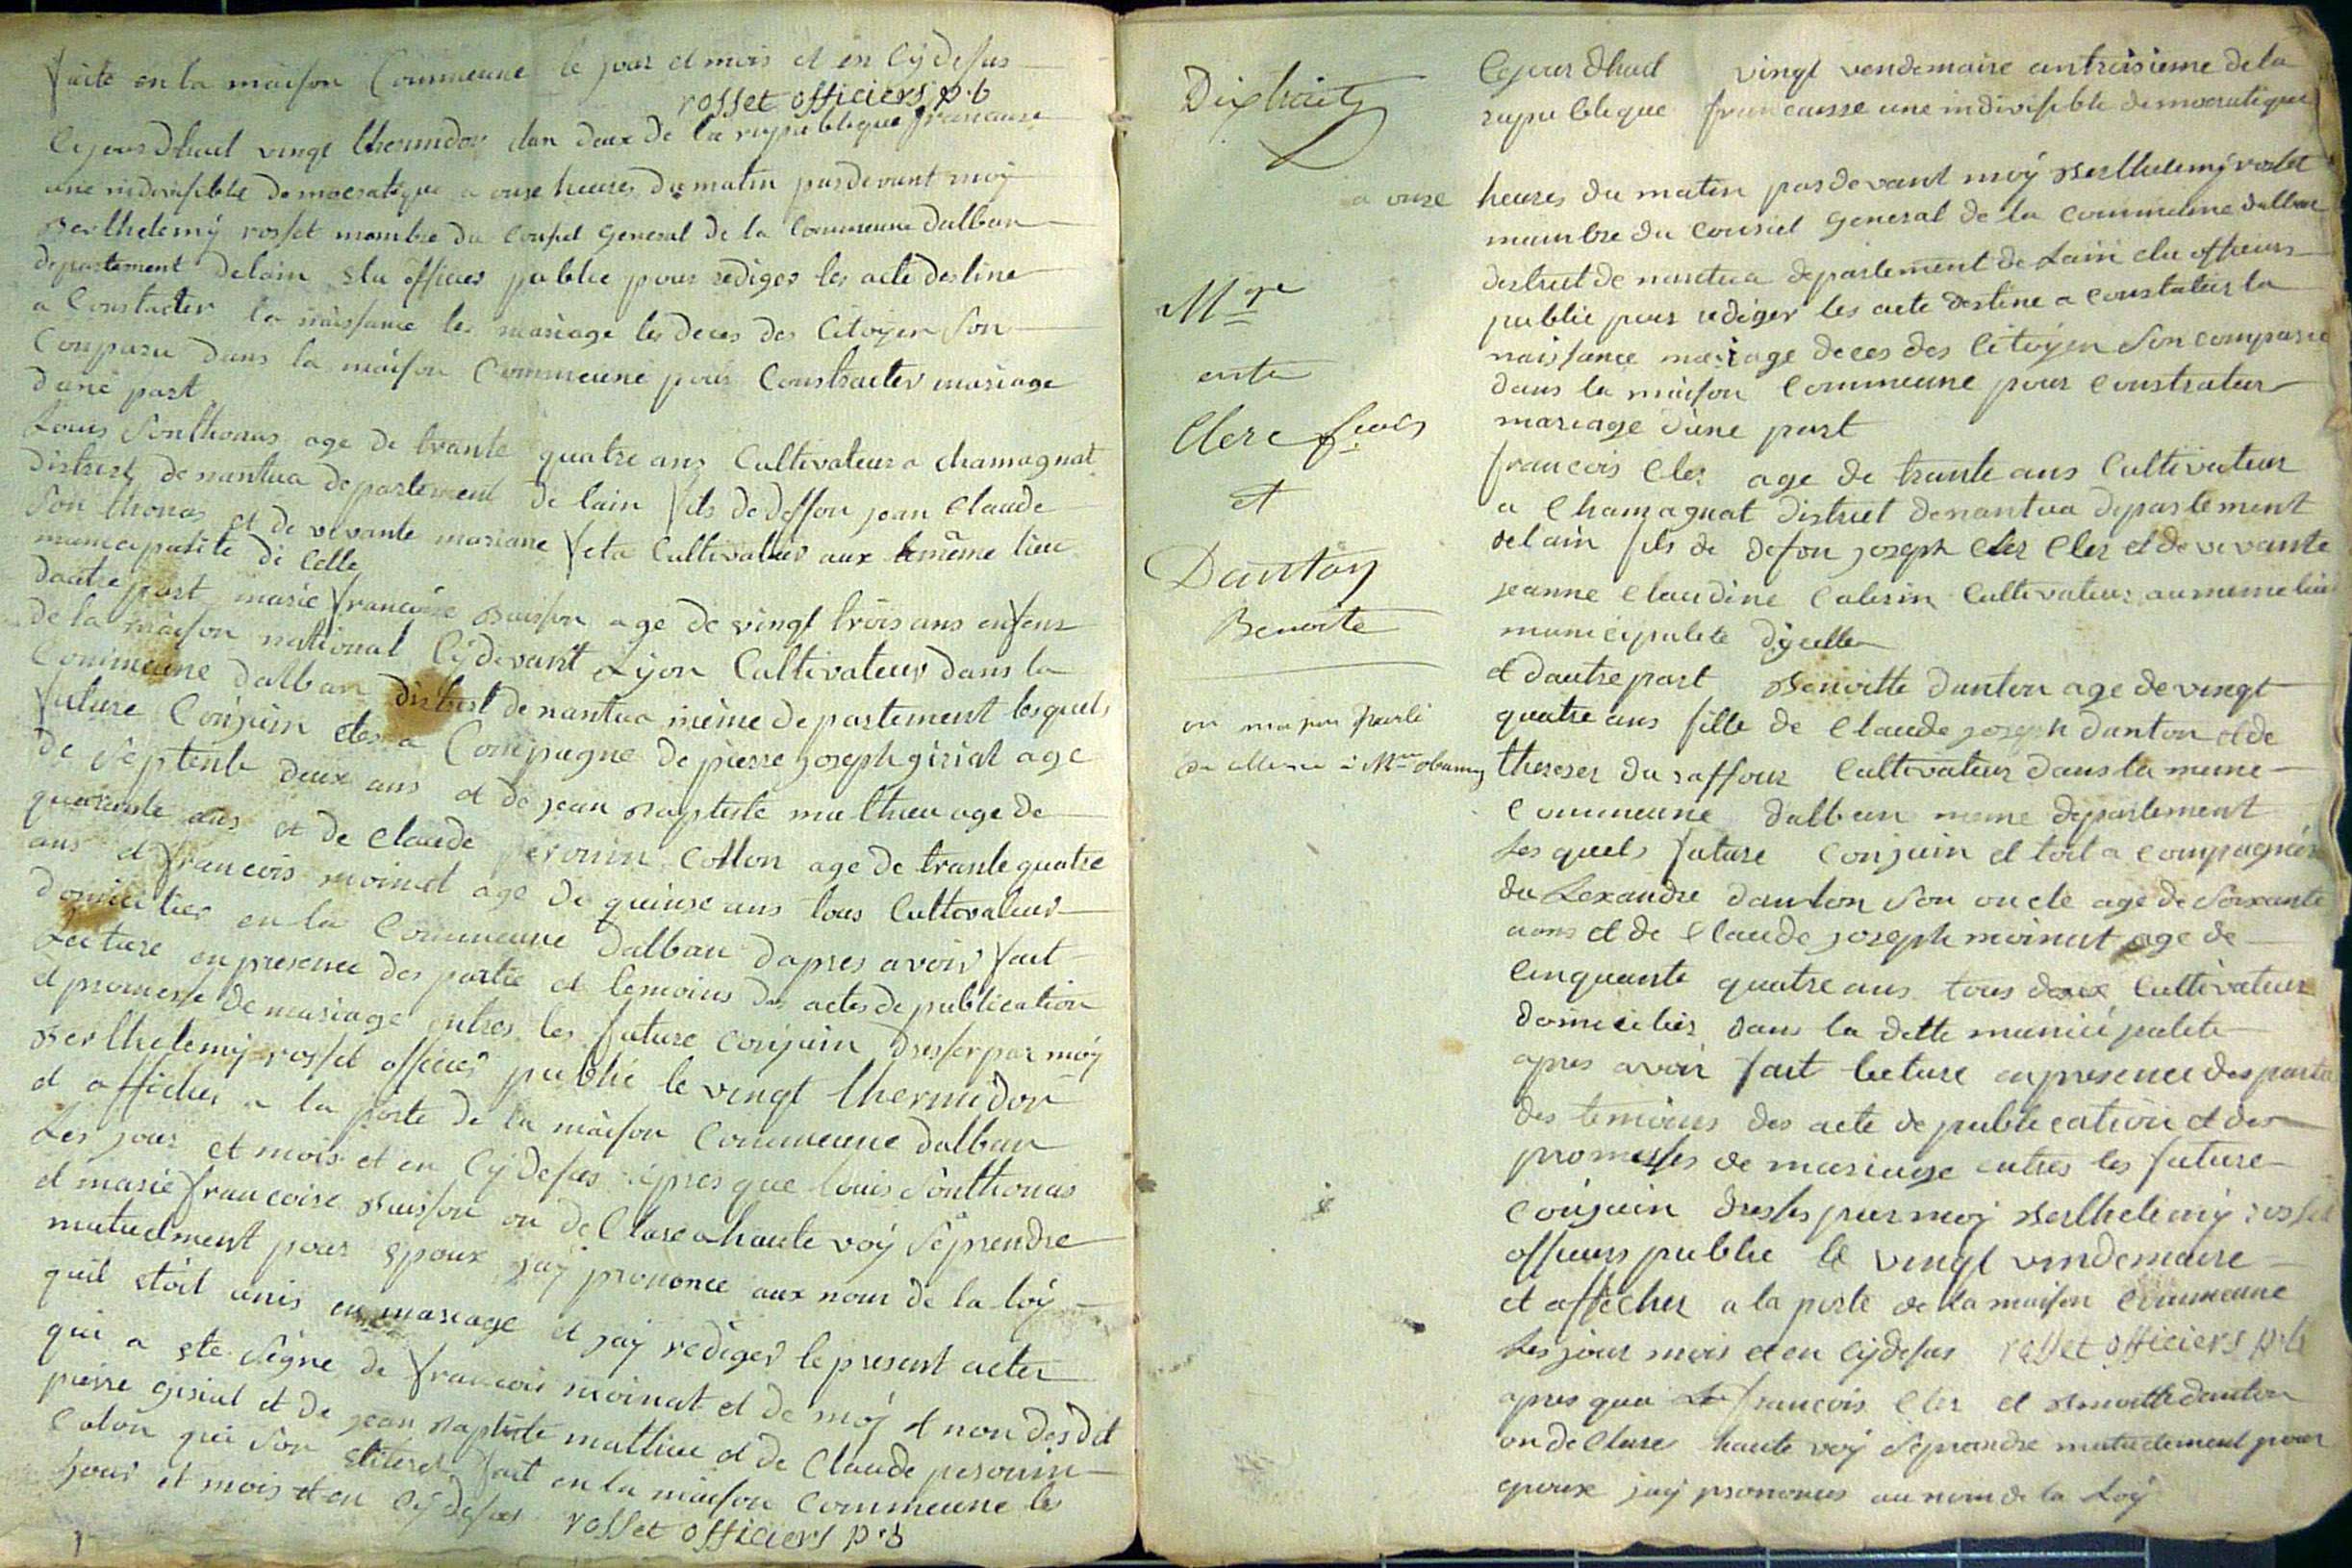 faite en la maison Commeune le jour et mois et en Cÿ desus
rosset officiers p.b
Cejourdhuit vingt thermidor dan deux de la republique francaise
une indivisible democratique a onze heures du matin pardevant moÿ
Berthelemÿ rosset membre du Conseil General de la Commeune dalban
departement delain elu officier public pour rediger les acte destine
a Constacter la naissance les mariage les deces des Citoÿen Son
Comparu dans la maison Commeune pour Constracter mariage
dune part
Louis Sonthonas age de trante quatre ans Cultivateur a chamagnat
district de nantua departement de lain fils de deffon jean Claude
Son thonas et de vivante mariane feta Cultivateur aux le même lieu
municipalite di Celle
dautre part marie francoise Buisson age de vingt trois ans enfens
de la maison national Cÿ devant Lÿon Cultivateur dans la
Commeune dalban district de nantua même departement lesquels
future Conjuin et a Compagne de pierre joseph giriat age
de Septente deux ans et de jean Baptiste mathieu age de
quarante ans et de Claude perouin Cotton age de trante quatre
ans et francois moinat age de quinse ans tous Cultivateur
domicilier en la Commeune dalban dapres avoir fait
Lecture en presence des partie et temoins des actes de publication
et promesse de mariage entres les future Conjuin dresser par moÿ
Berthelemÿ rosset officier public le vingt thermidor
et afficher a la porte de la maison Commeune dalban
Les jour et mois et en Cÿ desus apres que louis Sonthonas
et marie francoise Buisson on de Clare a haute voÿ Seprendre
mutuelment pour epoux jaÿ prononce aux nom de la loÿ
quil etoit unis en mariage et jaÿ rediger le present acter
qui a ete Signe de francois moinat et de moÿ et non des dit
pierre giriat et de jean Baptiste mathieu et de Claude perouin
Coton qui Son fait en la maison Commeune les
jour et mois et en Cÿ desus rosset officiers p.b
Dixhuit
Mge
entre
Clerc fcois
et
Danton
Benoite
Cejourdhuit vingt vendemaire antroisieme dela
republique francaisse une indivisible democratique
a onze heures du matin pardevant moÿ Berthelemÿ rosset
membre du Conseil General de la Commeune dalban
destrict de nantua departement de Lain elu officiers
public pour rediger les acte destine a Constater la
naissance mariage deces des Citoÿen Son comparu
dans la maison Commeune pour Constrater
mariage dune part
francois Cler age de trante ans Cultivateur
a Chamagnat district denantua departement
delain fils de defon joseph Cler Cler et de vivante
jeanne Claudine Cultivateur au meme lieu
municipalete dÿcelle
et dautre part Benoitte danton age de vingt
quatre ans fille de Claude joseph danton et de
thereser du saffour Cultivateur dans la meme
Commeune dalban meme departement
Les quels future Conjuin et a compagnée
du Lexandre danton Son oncle age de Soixante
et de Claude joseph moinat age de
Cinquante quatre ans tous deux Cultivateur
domicilier dans la dette municipalite
apres avoir fait lecture en presence des
des temoins des acte de publication et des
promesses de mariage entres les future
Conjuin par moÿ Berthelemÿ rosset
officiers public le vingt vindemaire
et afficher a la porte de la maison Commeune
Les jour mois et en Cÿ desus rosset officiers p.b
apres que francois Cler et Benoitte danton
on de Clare haute voÿ Seprandre mutuelement pour
epoux jaÿ prononces au nom de la Loÿ